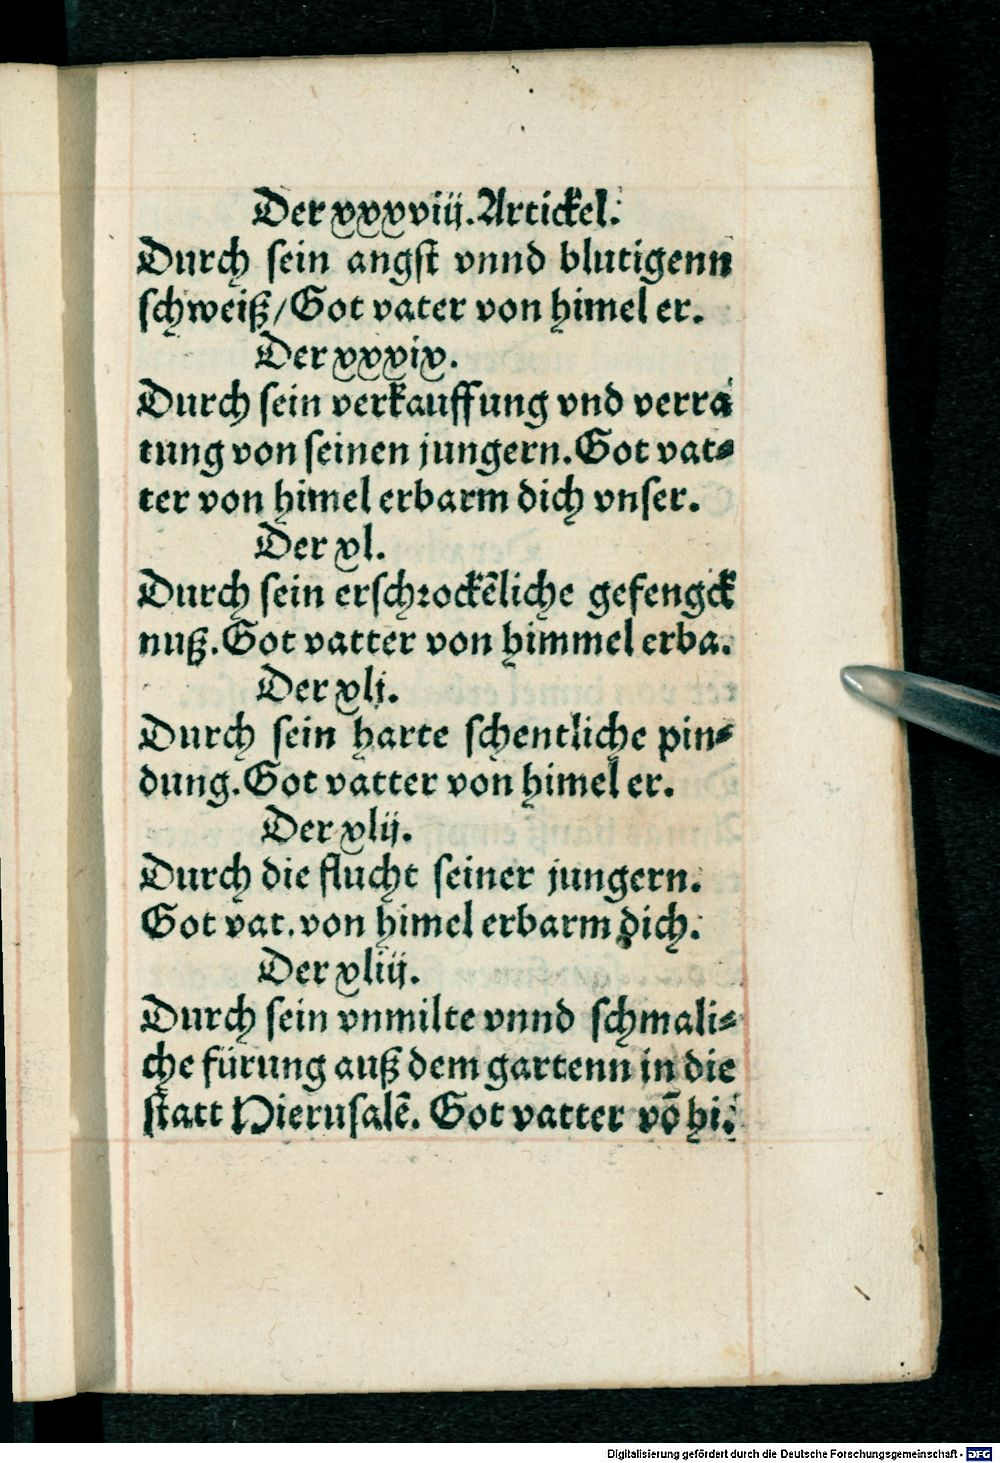 Der xxxviij. Artickel.
Durch sein angst vnnd blutigenn
schweiß/Got vater von himel er.
Der xxxix.
Durch sein verkauffung vnd verra
tung von seinen jungern. Got vat⸗
ter von himel erbarm dich vnser.
Der xl.
Durch sein erschrockēliche gefengck
nuß. Got vatter von himmel erba.
Der xlj.
Durch sein harte schentliche pin⸗
dung. Got vatter von himel er.
Der xlij.
Durch die flucht seiner jungern.
Got vat. von himel erbarm dich.
Der xliij.
Durch sein vnmilte vnnd schmali⸗
che fürung auß dem gartenn in die
statt Hierusalē. Got vatter vō hi.
Digitalisierung gefördert durch die Deutsche Forschungsgemeinschaft - DFG